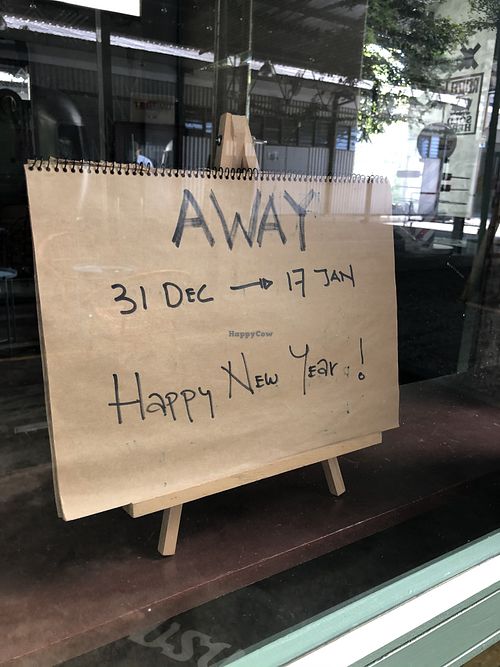 AWAY
31 DEC → 17 JAN
HappyCow
Happy New Year!